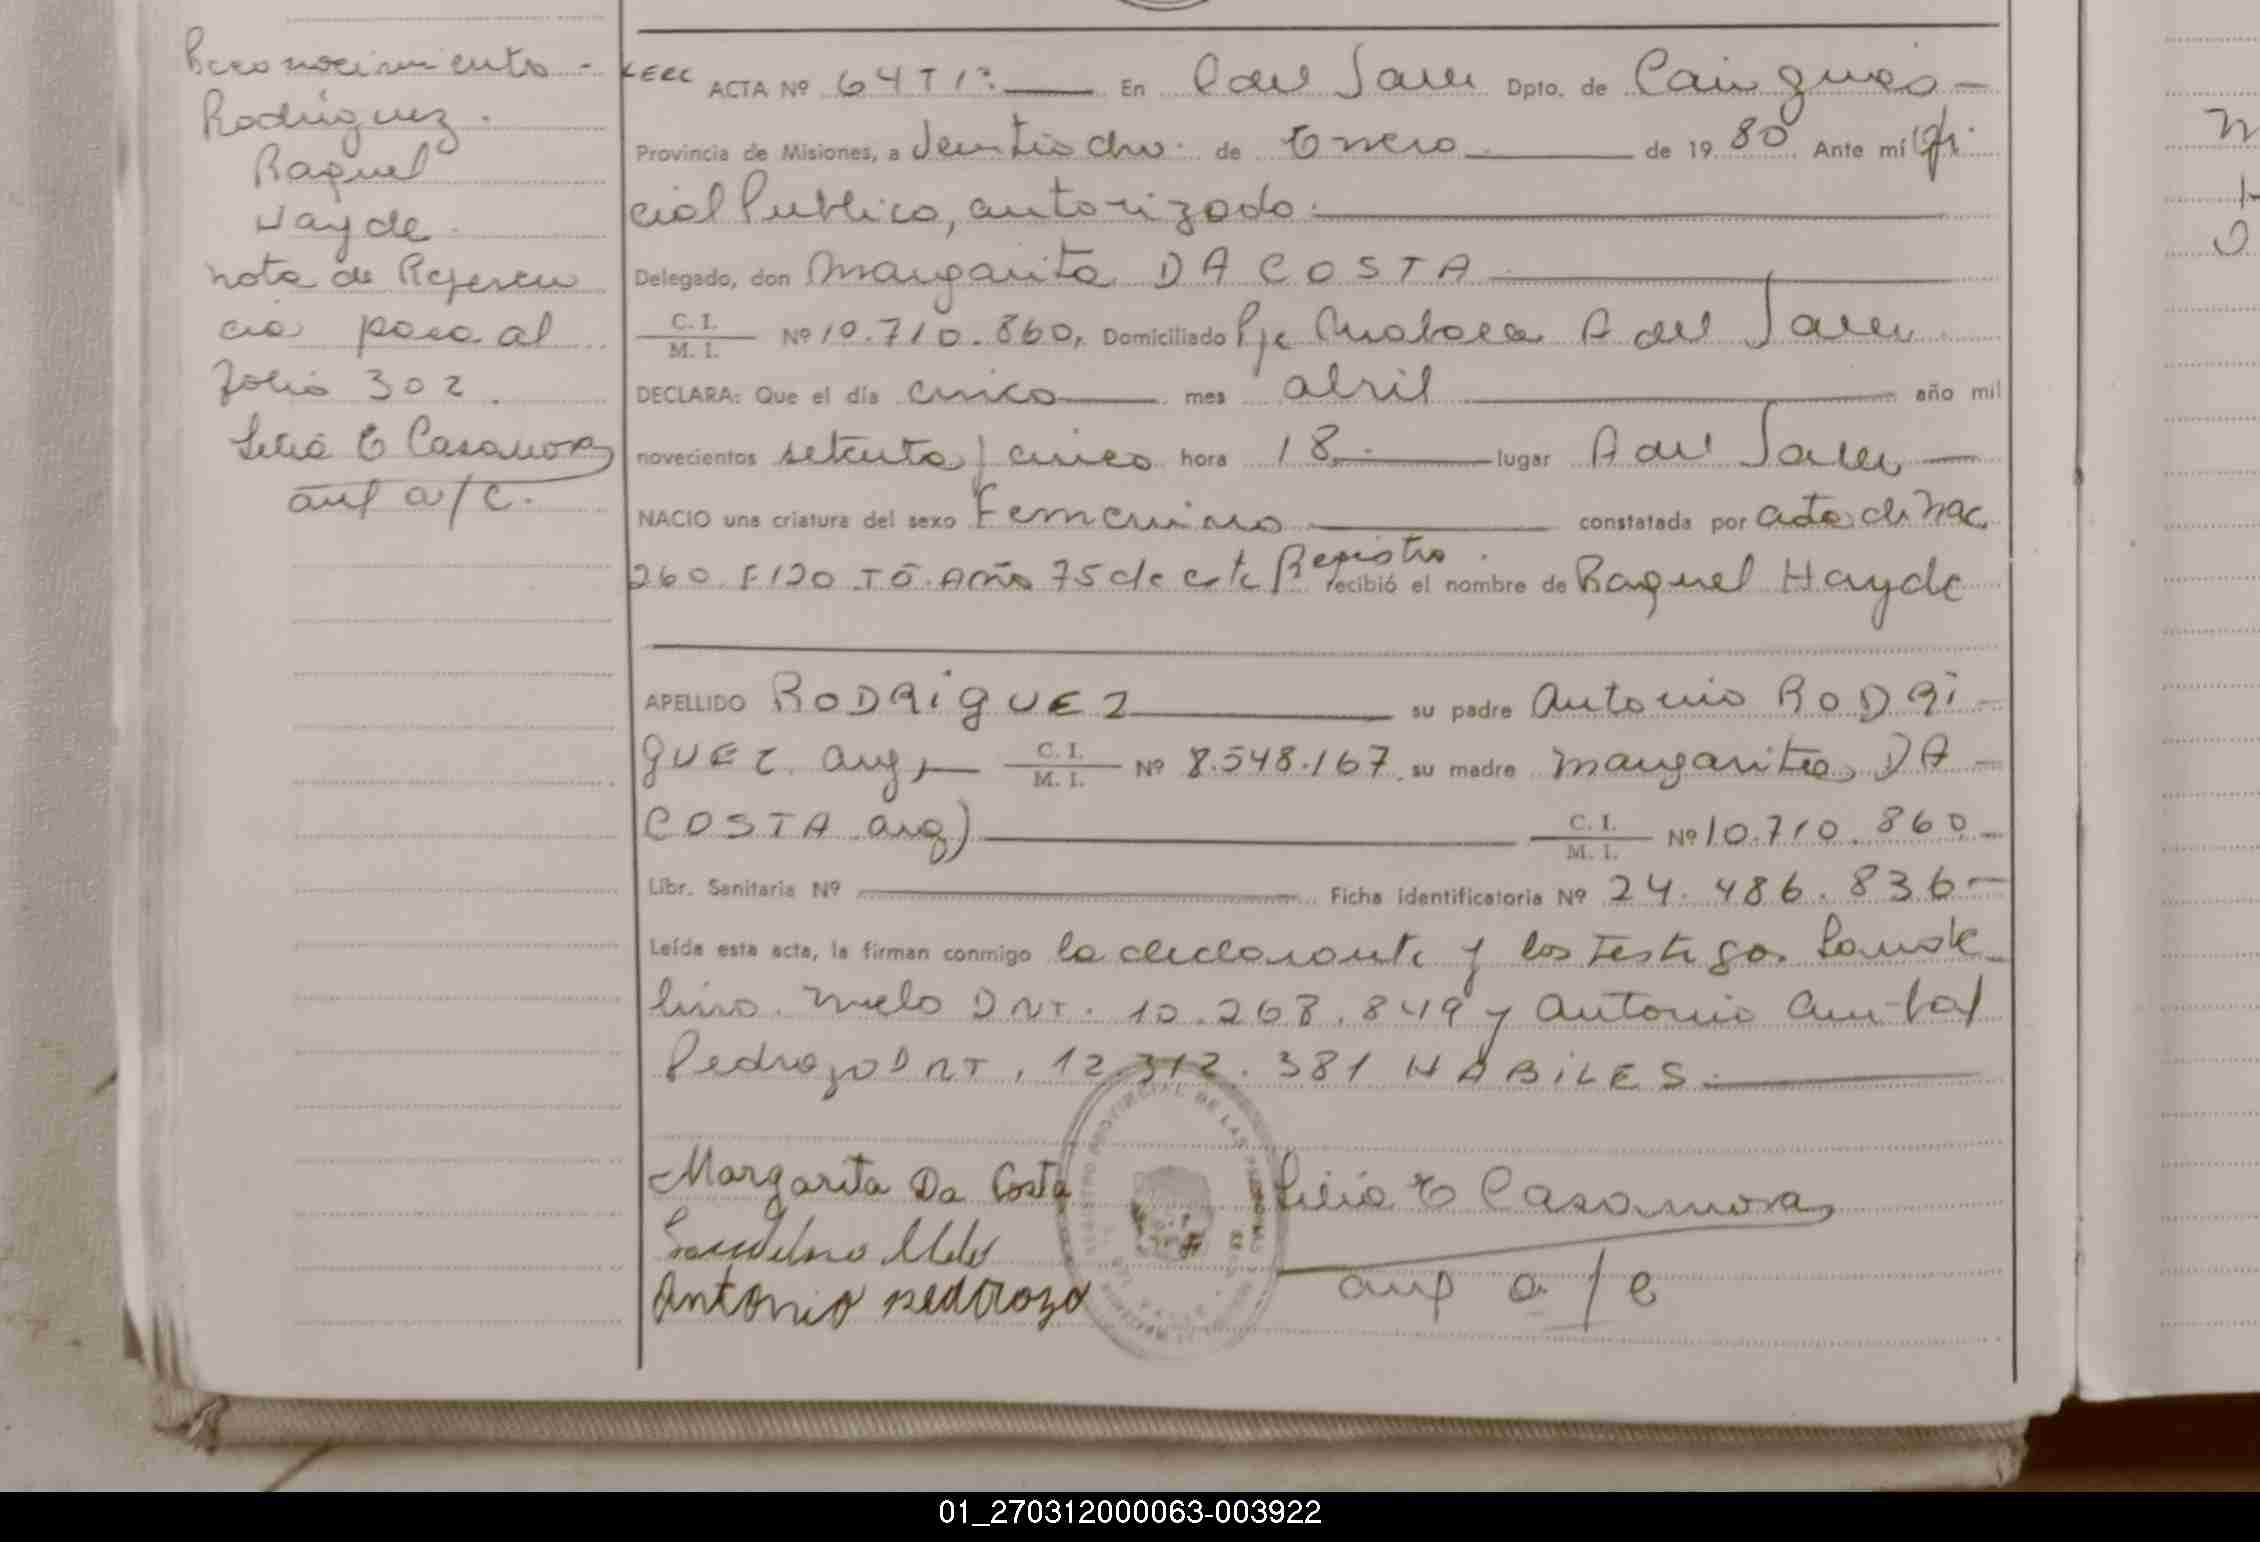 Reconocimiento -
Rodriguez.
Raquel
Hayde.
nota de Referen
cia pasa al
folio 302.
Lilia E Casanova
a/c.
ACTA Nº 64 T 1º. En del Dpto. de Cainguas -
Provincia de Misiones, a Veintiocho. de Enero de 1980 Ante mí Ofi
cial Publico, autorizado.
Delegado, don Margarita DA COSTA
C. I.
M. I. Nº 10.710.860, Domiciliado Pje A del
DECLARA: Que el día cinco mes abril año mil
novecientos setenta y cinco hora 18. lugar A del
NACIO una criatura del sexo Femenino constatada por acta de Nac
260 F 120 Tº Año 75 de este Registro. recibió el nombre de Raquel Hayde
APELLIDO RODRIGUEZ su padre Antonio RODRI -
GUEZ arg, C. I.
M. I. Nº 8.548.167. su madre Margarita DA -
COSTA arg) C. I.
M. I. Nº 10.710.860 -
Libr. Sanitaria Nº Ficha identificatoria Nº 24.486.836 -
Leída esta acta, la firman conmigo la declarante y los testigos
lino. Melo DNI. 10.268.849 y Antonio Anibal
Pedrozo DNI, 12.312.381 HABILES.
Margarita Da Costa
Antonio pedrozo
Lilia E Casanova
a/c
REGISTRO PROVINCIAL DE LAS PERSONAS
01_270312000063-003922